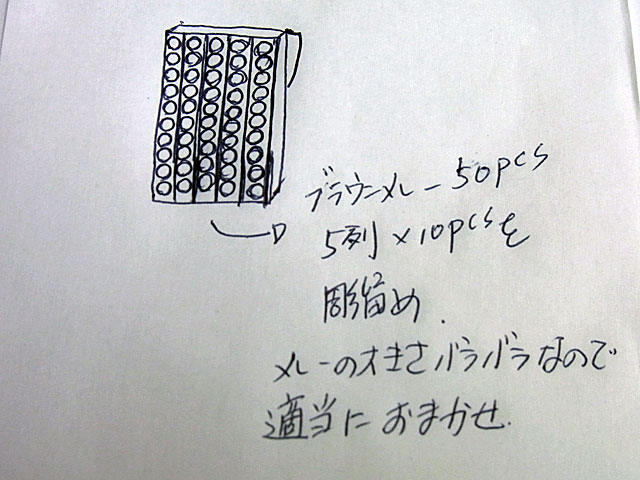 ブラウンメレー 50pcs
5列×10pcsを
彫留め.
メレーの大きさバラバラなので
適当に おまかせ.